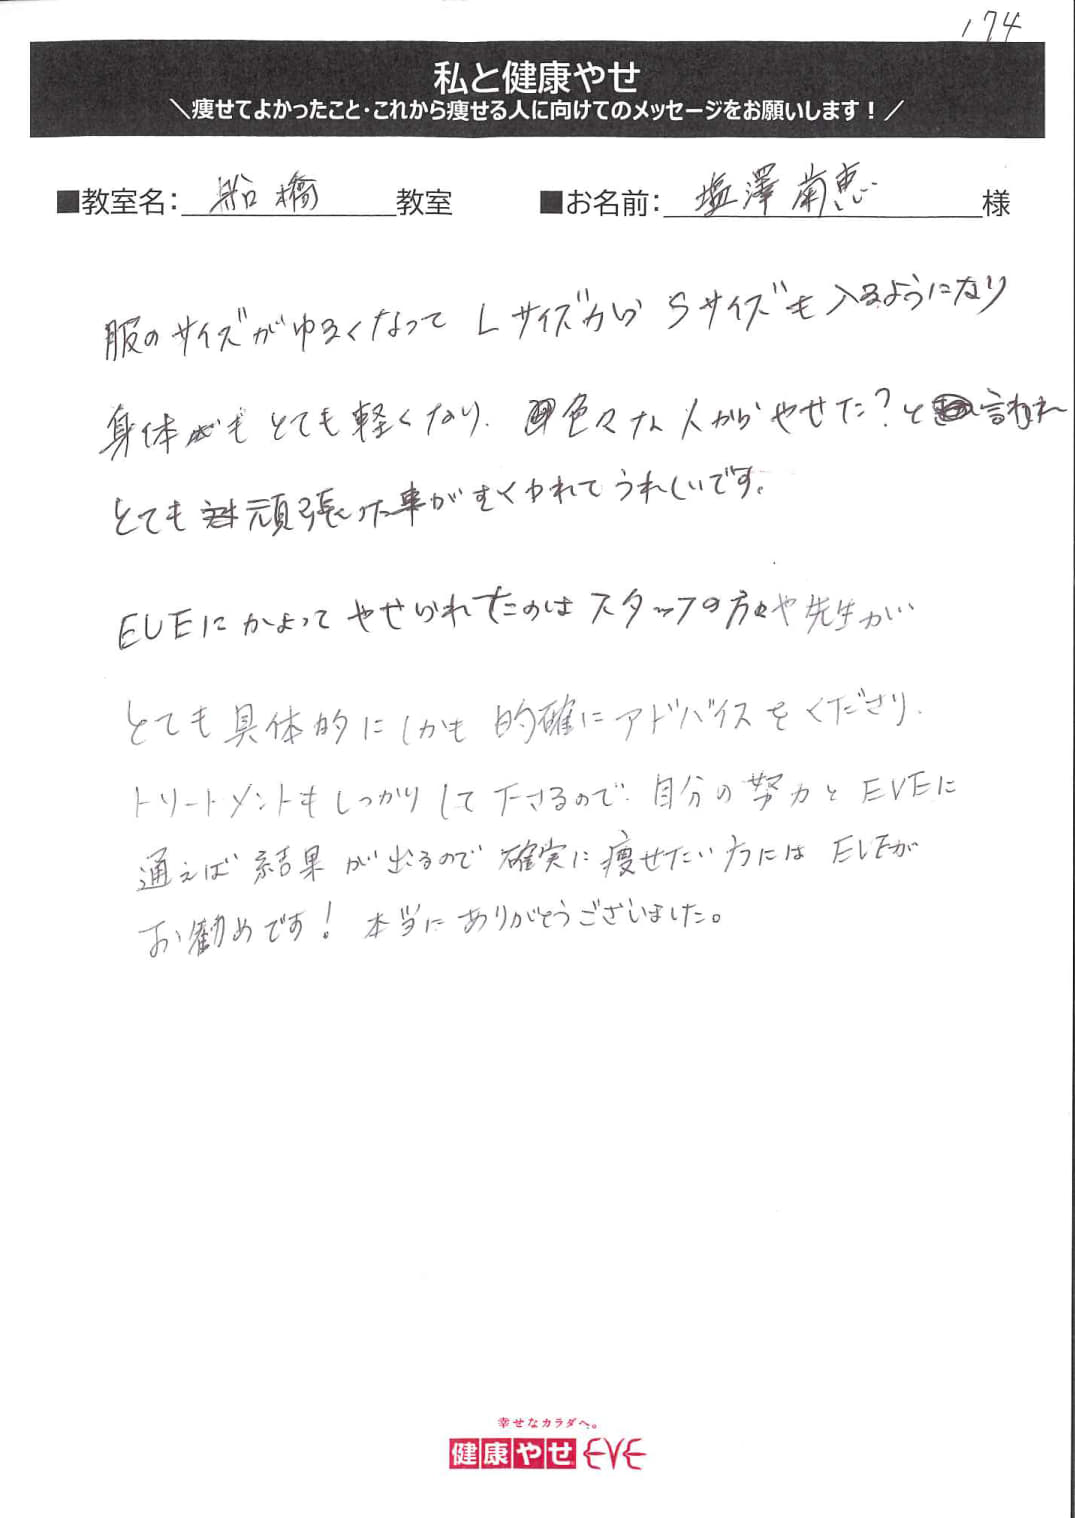 174
私と健康やせ
＼痩せてよかったこと・これから痩せる人に向けてのメッセージをお願いします！／
■教室名：船橋教室 ■お名前：塩澤南恵様
服のサイズがゆるくなって LサイズからSサイズも入るようになり
身体もとても軽くなり、色々な人からやせた？と言われ
とても頑張った事がむくわれてうれしいです。
EVEにかよってやせられたのはスタッフの方々や先生が
とても具体的にしかも的確にアドバイスをくださり、
トリートメントもしっかりして下さるので、自分の努力とEVEに
通えば結果が出るので確実に痩せたい方にはEVEが
お勧めです！本当にありがとうございました。
幸せなカラダへ。
健康やせEVE